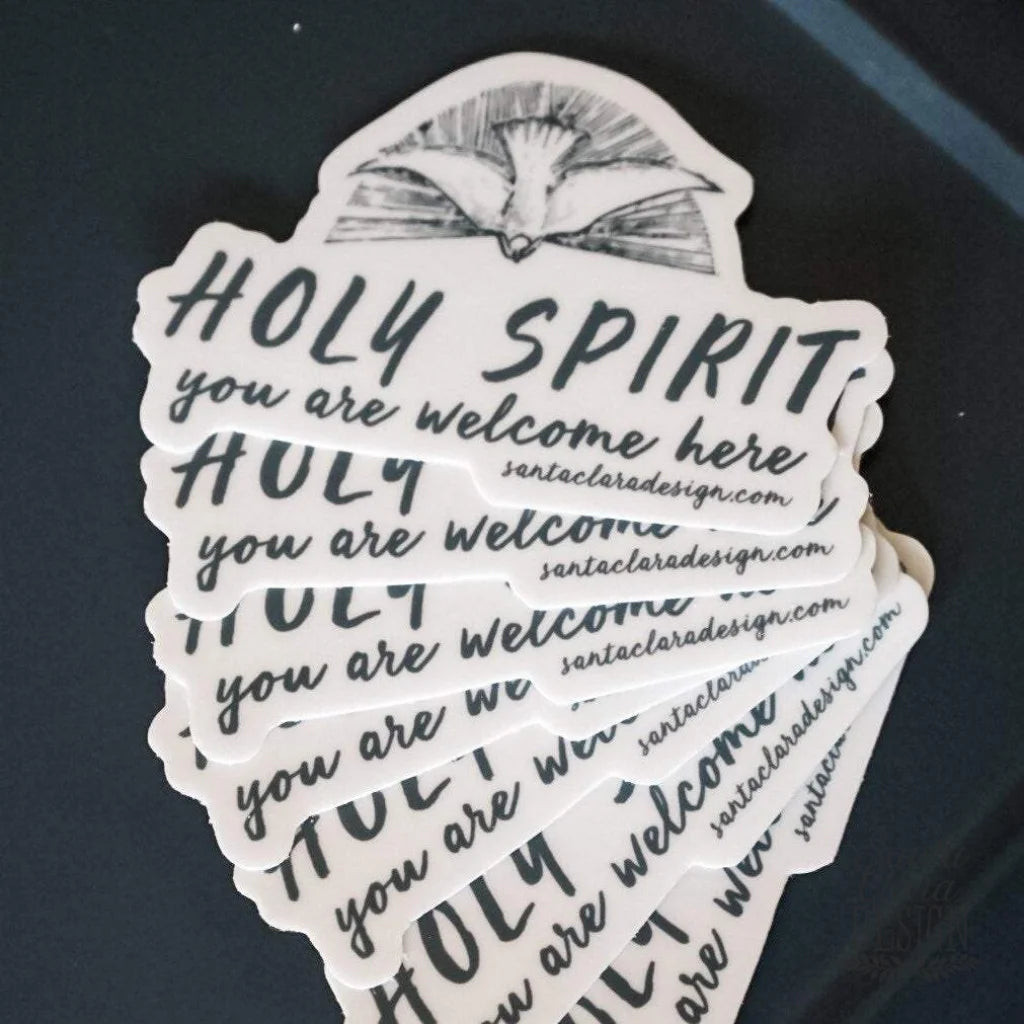 HOLY SPIRIT
you are welcome here
santaclaradesign.com
HOLY
you are welcome
santaclaradesign.com
HOLY
you are welcome
santaclaradesign.com
you are we
HOLY
you are wel
santaclara
HOLY
you are welcome
santaclaradesign.com
are wel
santacla
DESIGN